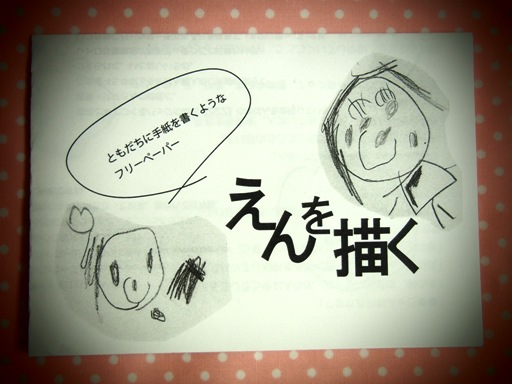 ともだちに手紙を書くような
フリーペーパー
えんを描く